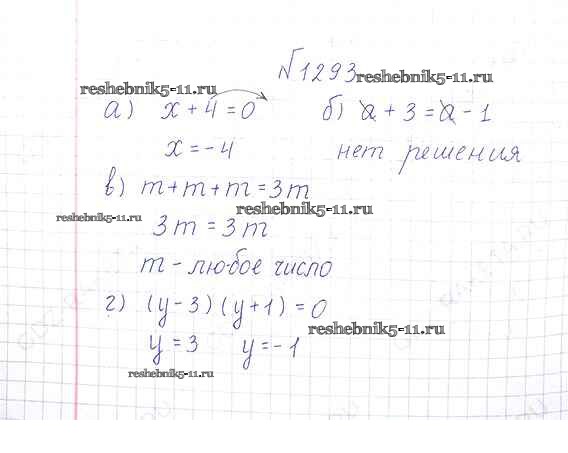 №1293
reshebnik5-11.ru reshebnik5-11.ru
а) x + 4 = 0 б) a + 3 = a - 1
x = - 4 нет решения
в) m + m + m = 3 m
reshebnik5-11.ru reshebnik5-11.ru
3 m = 3 m
m - любое число
г) (y - 3) (y + 1) = 0
reshebnik5-11.ru
y = 3 y = - 1
reshebnik5-11.ru